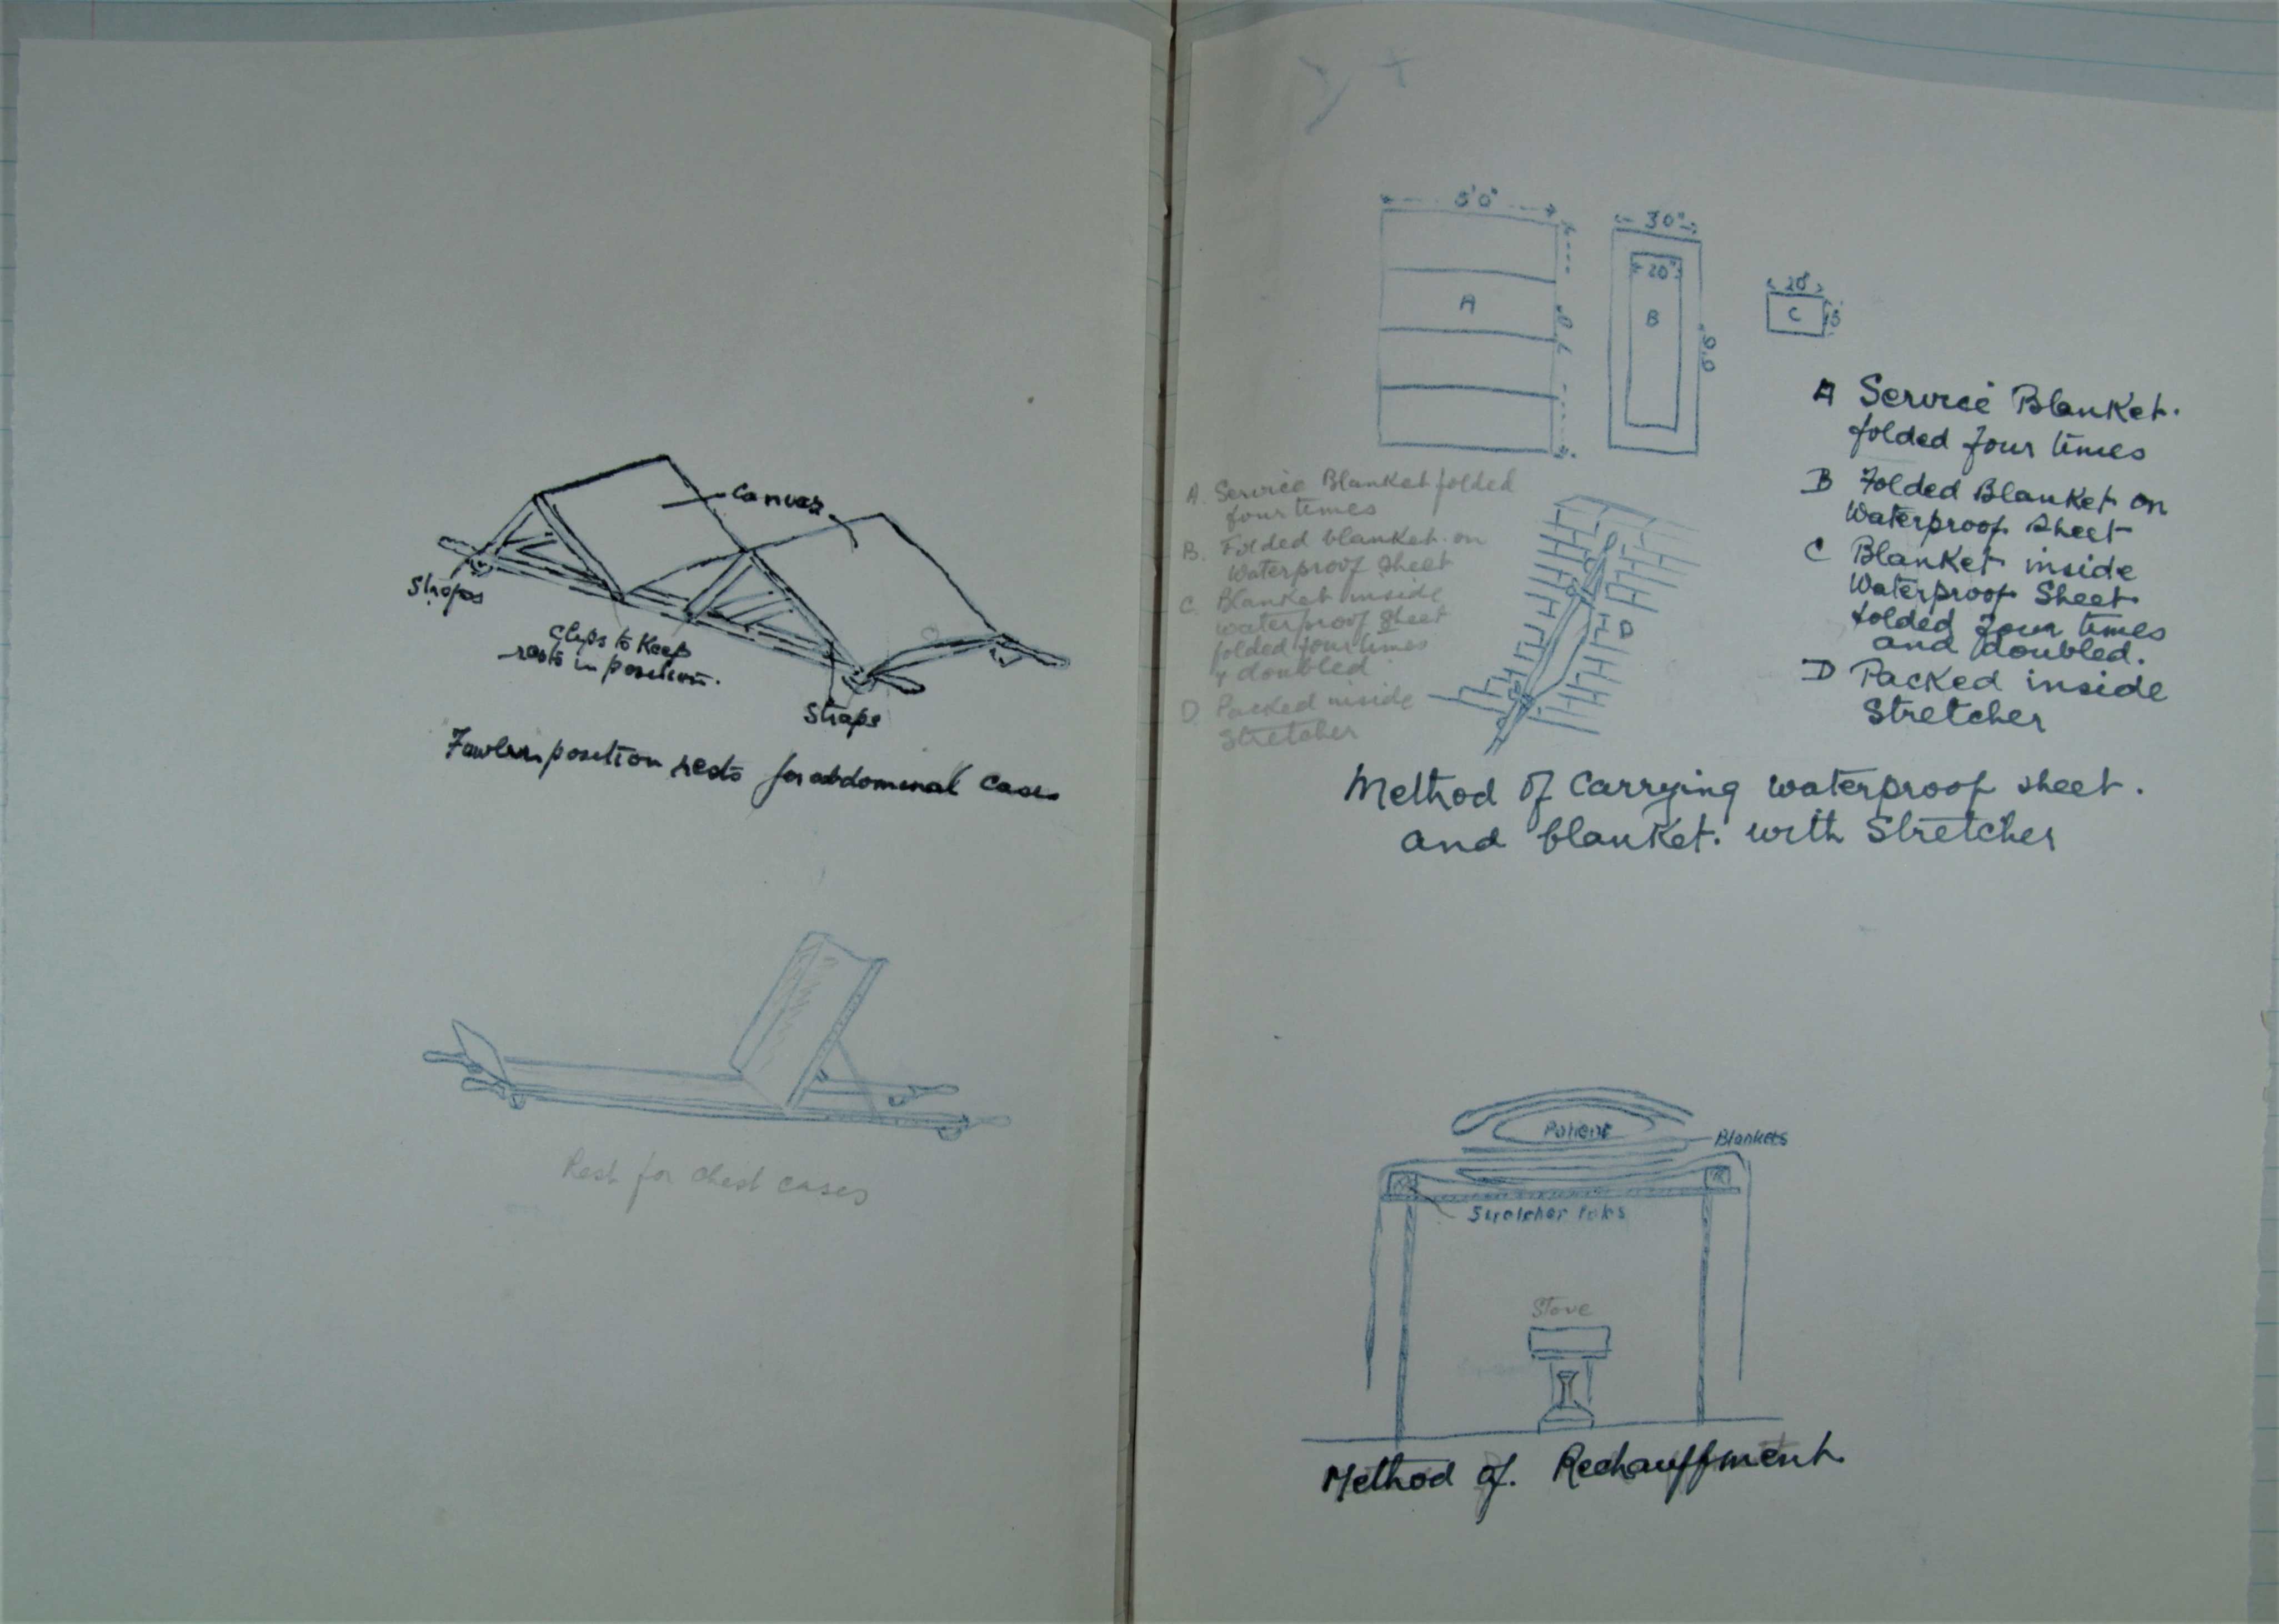 Canvas
Straps
Clips to Keep
rests in position.
Straps
Fowler position rests for abdominal Cases
Rest for chest cases
5'0"
30"
20"
20"
A
B
C
6'6"
A Service Blanket.
folded four times
B Folded Blanket on
Waterproof Sheet
C Blanket inside
Waterproof Sheet
folded four times
and doubled.
D Packed inside
Stretcher
A. Service Blanket folded
four times
B. Folded blanket on
Waterproof Sheet
C. Blanket inside
waterproof sheet
folded four times
& doubled
D Packed inside
Stretcher
D
Method of Carrying waterproof sheet.
and blanket. with Stretcher
Patient
Blankets
Stretcher Poles
Stove
Method of. Rechauffment